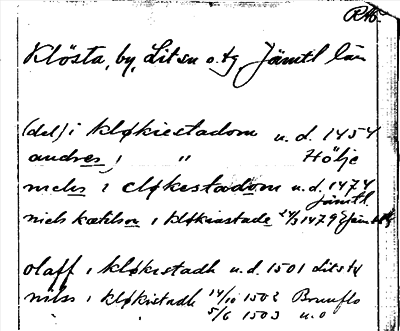 Klösta, by, Lit sn o. tg Jämtl län
(del) i kløkiestadom u. d. 1454
andres i " Hölje
niels i cløkestadom u. d. 1474
Jämtl
niels kætilson i kløkiastade 1479
olaff i kløkistadh u. d. 1501 Lits tg
nilss i kløkistadh 14/10 1502 Brunflo
5/6 1503 u. o